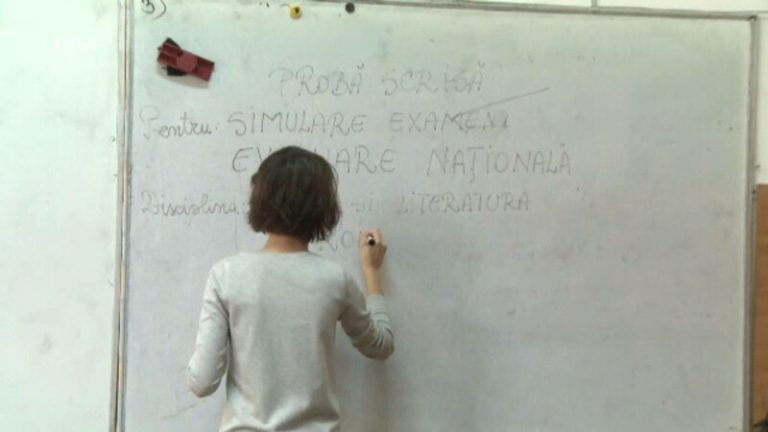 3)
PROBĂ SCRISĂ
Pentru: SIMULARE EXAMEN
NAȚIONALĂ
Disciplina ȘI LITERATURA
RO